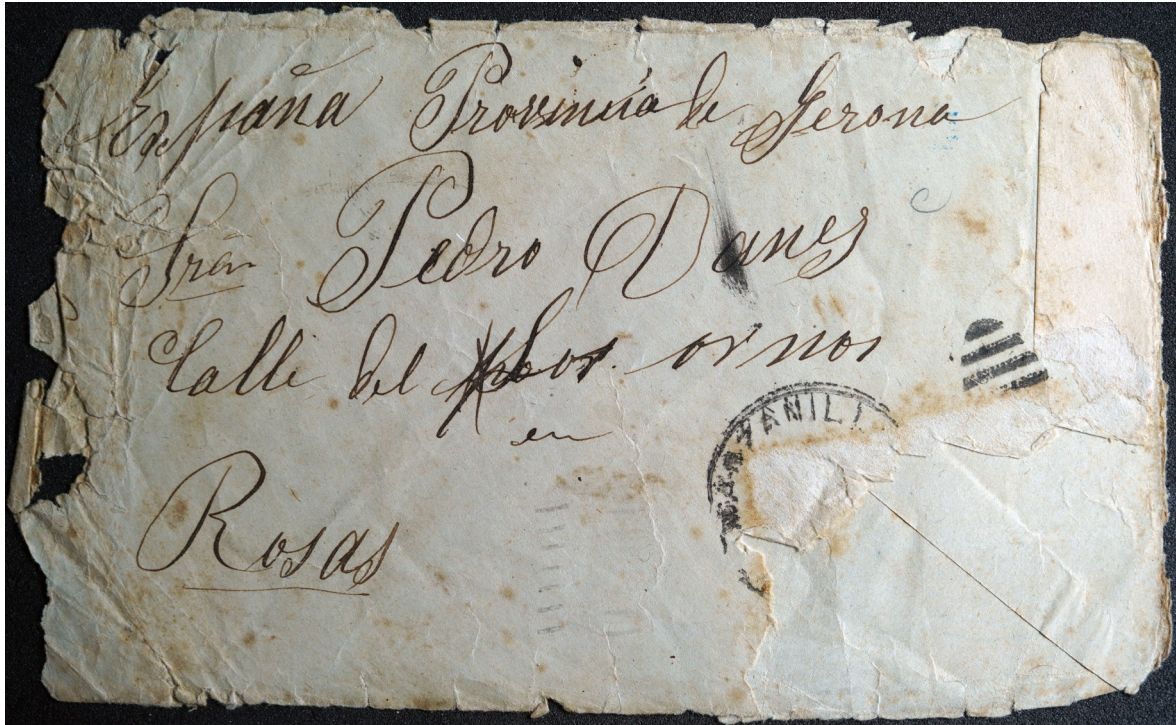 España Provincia de Gerona
Pedro Danes
Calle del ornos
en
Rosas
MANZANILL